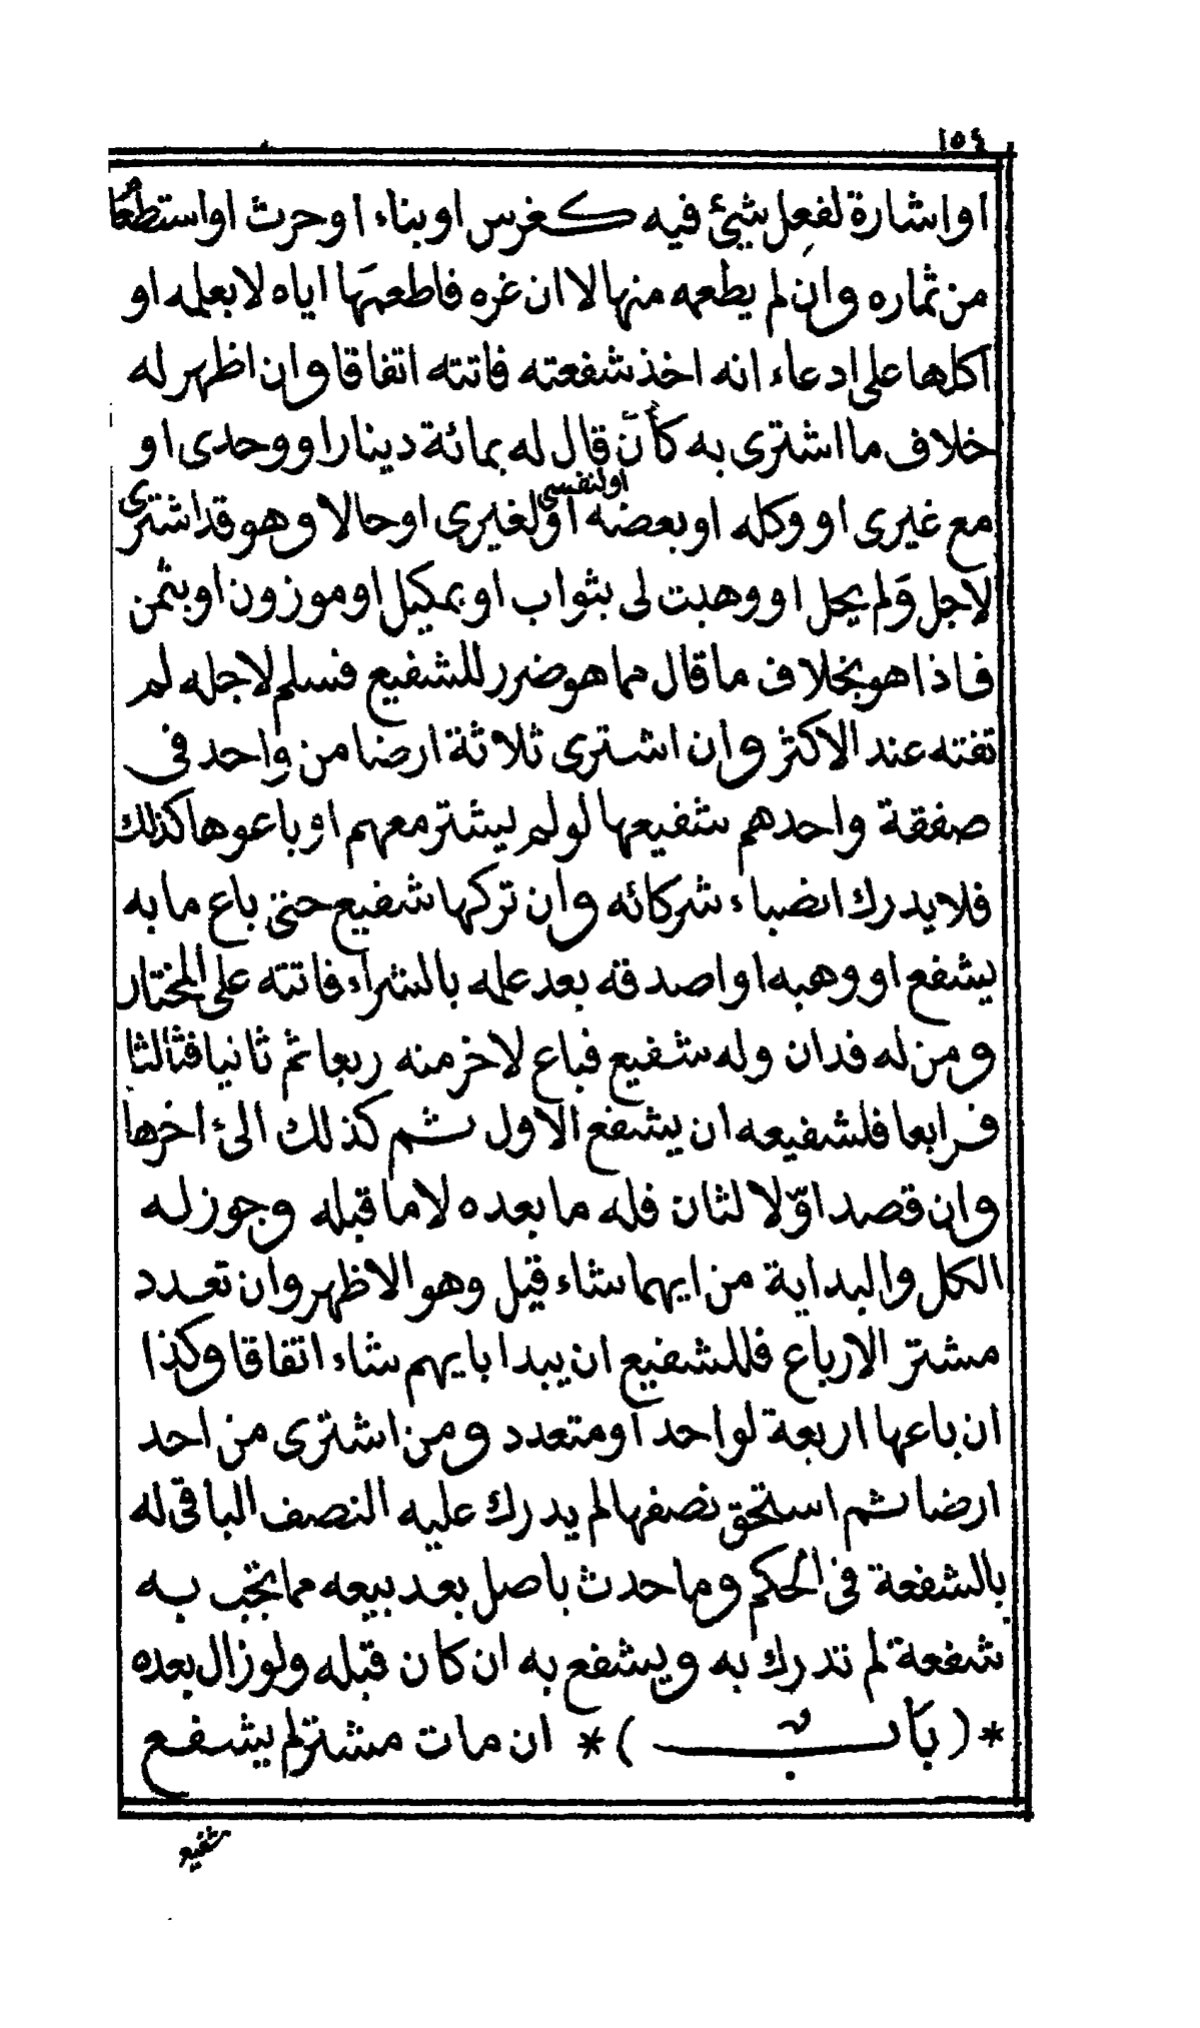 ١٥٤
او اشارة لفعل شيئ فيه كغرس او بناء او حرث او استطعام
من ثماره وان لم يطعمه منها لا ان غره فاطعمها اياه لا بعلمه او
اكلها على ادعاء انه اخذ شفعته فاتته اتفاقا وان اظهر له
خلاف ما اشترى به كأن قال له بمائة دينار او وحدى او
مع غيرى او وكله او بعضه او لنفسى او لغيرى او حالا وهو قد اشترى
لاجل ولم يحل او وهبت لى بثواب او بمكيل او موزون او بثمن
فاذا هو بخلاف ما قال مما هو ضرر للشفيع فسلم لاجله لم
تفته عند الاكثر وان اشترى ثلاثة ارضا من واحد فى
صفقة واحدهم شفيعها لو لم يشتر معهم او باعوها كذلك
فلا يدرك انصباء شركائه وان تركها شفيع حتى باع ما به
يشفع او وهبه او اصدقه بعد علمه بالشراء فاتته على المختار
ومن له فدان وله شفيع فباع لاخر منه ربعا ثم ثانيا فثالثا
فرابعا فلشفيعه ان يشفع الاول ثم كذلك الى اخرها
وان قصد اوّلا لثان فله ما بعده لا ما قبله وجوز له
الكل والبداية من ايهما شاء قيل وهو الاظهر وان تعدد
مشتر الارباع فللشفيع ان يبدا بايهم شاء اتفاقا وكذا
ان باعها اربعة لواحد او متعدد ومن اشترى من احد
ارضا ثم استحق نصفها لم يدرك عليه النصف الباقى له
بالشفعة فى الحكم وما حدث باصل بعد بيعه مما يجب به
شفعة لم تدرك به ويشفع به ان كان قبله ولو زال بعده
* (باب) * ان مات مشتر لم يشفع
شفيع